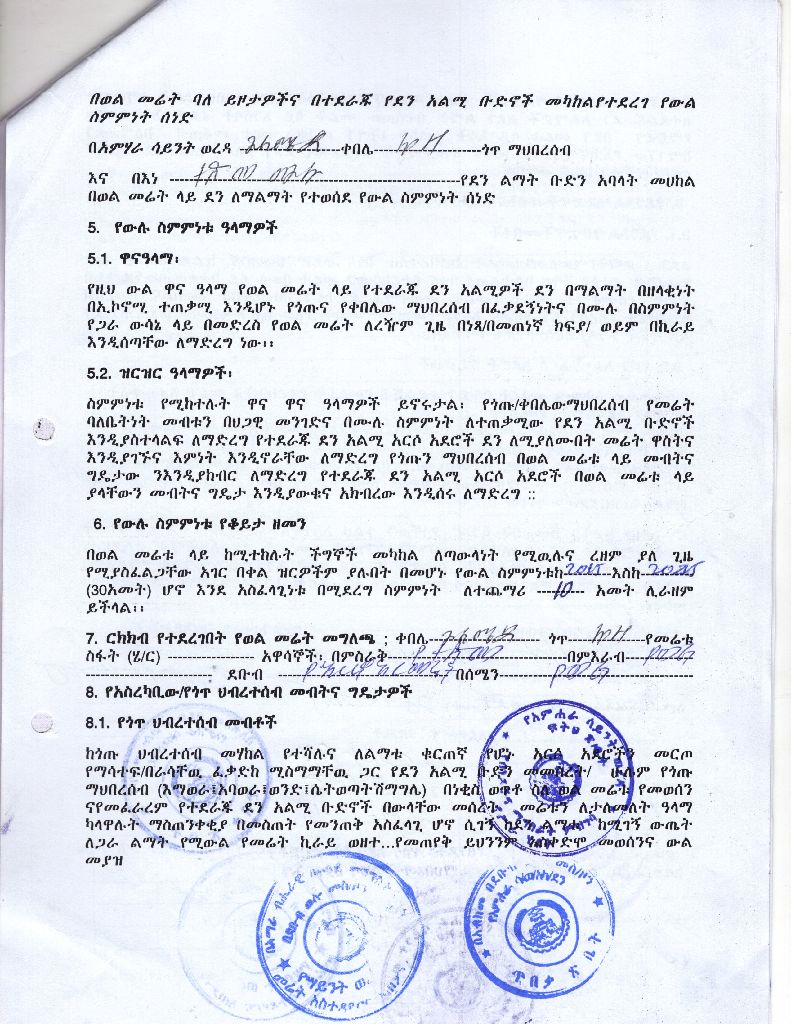 በወል መሬት ባለ ይዞታዎችና በተደራጁ የደን አልሚ ቡድኖች መካከልየተደረገ የውል
ስምምነት ሰነድ
በአምሃራ ሳይንት ወረዳ ቀበሌ ጎጥ ማህበረሰብ
እና በእነ የደን ልማት ቡድን አባላት መሀከል
በወል መሬት ላይ ደን ለማልማት የተወሰደ የውል ስምምነት ሰነድ
5. የውሉ ስምምነቱ ዓላማዎች
5.1. ዋናዓላማ፡
የዚህ ውል ዋና ዓላማ የወል መሬት ላይ የተደራጁ ደን አልሚዎች ደን በማልማት በዘላቂነት
በኢኮኖሚ ተጠቃሚ እንዲሆኑ የጎጡና የቀበሌው ማህበረሰብ በፈቃደኝነትና በሙሉ በስምምነት
የጋራ ውሳኔ ላይ በመድረስ የወል መሬት ለረዥም ጊዜ በነጻ/በመጠነኛ ክፍያ/ ወይም በኪራይ
እንዲሰጣቸው ለማድረግ ነው፡፡
5.2. ዝርዝር ዓላማዎች፡
ስምምነቱ የሚከተሉት ዋና ዋና ዓላማዎች ይኖሩታል፡ የጎጡ/ቀበሌውማህበረሰብ የመሬት
ባለቤትነት መብቱን በህጋዊ መንገድና በሙሉ ስምምነት ለተጠቃሚው የደን አልሚ ቡድኖች
እንዲያስተላልፍ ለማድረግ የተደራጁ ደን አልሚ አርሶ አደሮች ደን ለሚያለሙበት መሬት ዋስትና
እንዲያገኙና እምነት እንዲኖራቸው ለማድረግ የጎጡን ማህበረሰብ በወል መሬቱ ላይ መብትና
ግዴታው ንእንዲያከብር ለማድረግ የተደራጁ ደን አልሚ አርሶ አደሮች በወል መሬቱ ላይ
ያላቸውን መብትና ግዴታ እንዲያውቁና አክብረው እንዲሰሩ ለማድረግ ::
6. የውሉ ስምምነቱ የቆይታ ዘመን
በወል መሬቱ ላይ ከሚተከሉት ችግኞች መካከል ለጣውላነት የሚዉሉና ረዘም ያለ ጊዜ
የሚያስፈልጋቸው አገር በቀል ዝርዎችም ያሉበት በመሆኑ የውል ስምምነቱከ 2015 እስከ
(30አመት) ሆኖ እንደ አስፈላጊነቱ በሚደረግ ስምምነት ለተጨማሪ 10 አመት ሊራዘም
ይችላል፡፡
7. ርክክብ የተደረገበት የወል መሬት መግለጫ ; ቀበሌ ጎጥ የመሬቱ
ስፋት (ሄ/ር) አዋሳኞች፡ በምስራቅ በምእራብ
ደቡብ በሰሜን
8. የአስረካቢው/የጎጥ ህብረተሰብ መብትና ግዴታዎች
8.1. የጎጥ ህብረተሰብ መብቶች
ከጎጡ ህብረተሰብ መሃከል የተሻሉና ለልማቱ ቁርጠኛ የሆኑ አርሶ አደሮችን መርጦ
የማሳተፍ/በራሳቸዉ ፈቃድከ ሚስማማቸዉ ጋር የደን አልሚ ቡድን መመስረት/ ሁሉም የጎጡ
ማህበረሰብ (እማወራ፤አባወራ፤ወንድ፤ሴትወጣትሽማግሌ) በነቂስ ወጥቶ ስለ ወል መሬቱ የመወሰን
ናየመፈራረም የተደራጁ ደን አልሚ ቡድኖች በውላቸው መሰረት መሬቱን ለታለመለት ዓላማ
ካላዋሉት ማስጠንቀቂያ በመስጠት የመንጠቅ አስፈላጊ ሆኖ ሲገኝ ከደን ልማቱ ከሚገኝ ውጤት
ለጋራ ልማት የሚውል የመሬት ኪራይ ወዘተ...የመጠየቅ ይህንንም በቅድሞ መወሰንና ውል
መያዝ
ጥበቃ ጽ ቤት